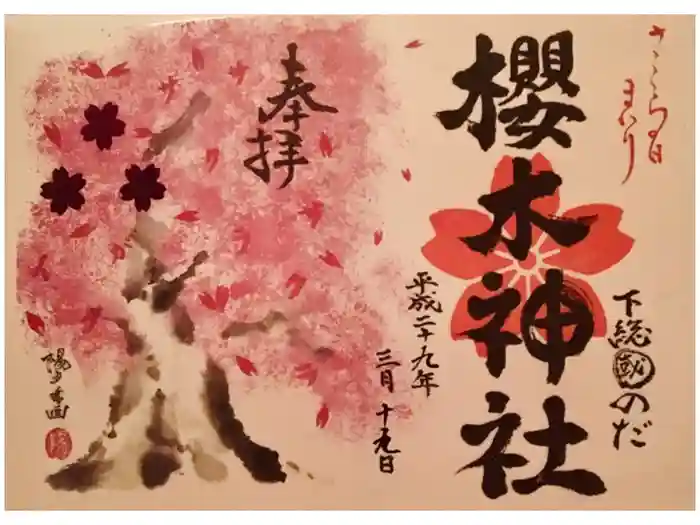 さくらの日
まいり
櫻木神社
下総國のだ
奉拝
平成二十九年
三月十九日